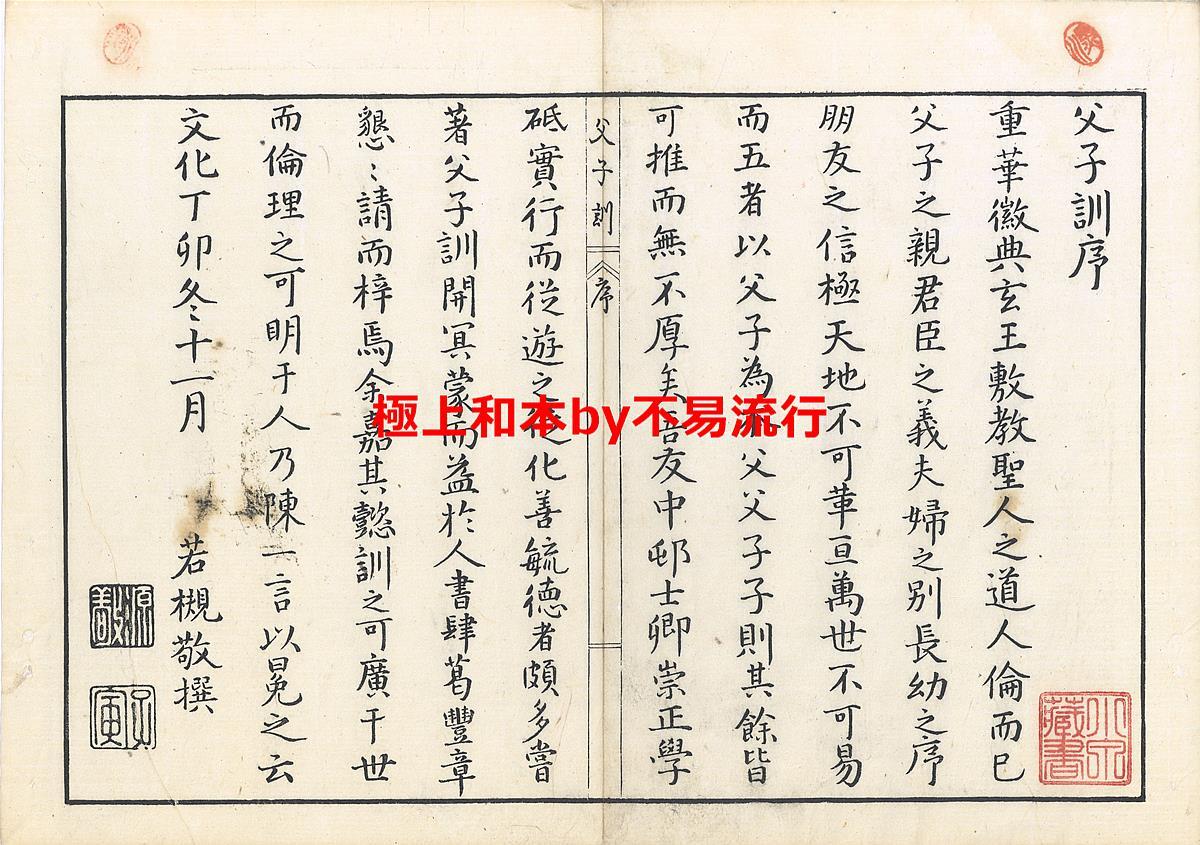 父子訓序
重華徽典玄王敷教聖人之道人倫而已
父子之親君臣之義夫婦之別長幼之序
朋友之信極天地不可革亘萬世不可易
而五者以父子為父父子子則其餘皆
可推而無不厚矣吾友中邨士卿崇正學
父子訓 序
砥實行而從遊之徒化善毓德者頗多嘗
著父子訓開冥蒙而益於人書肆葛豐章
懇〻請而梓焉余嘉其懿訓之可廣于世
而倫理之可明于人乃陳一言以冕之云
文化丁卯冬十一月
若槻敬撰
源敬
子寅
藏書
極上和本by不易流行